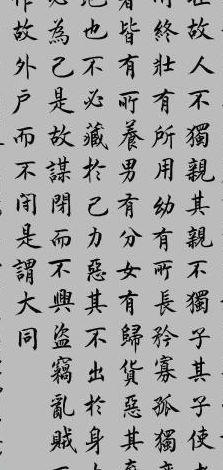 故人不獨親其親不獨子其子使
終壯有所用幼有所長矜寡孤獨
者皆有所養男有分女有歸貨惡其
也不必藏於己力惡其不出於身
必為己是故謀閉而不興盜竊亂賊
作故外戶而不閉是謂大同